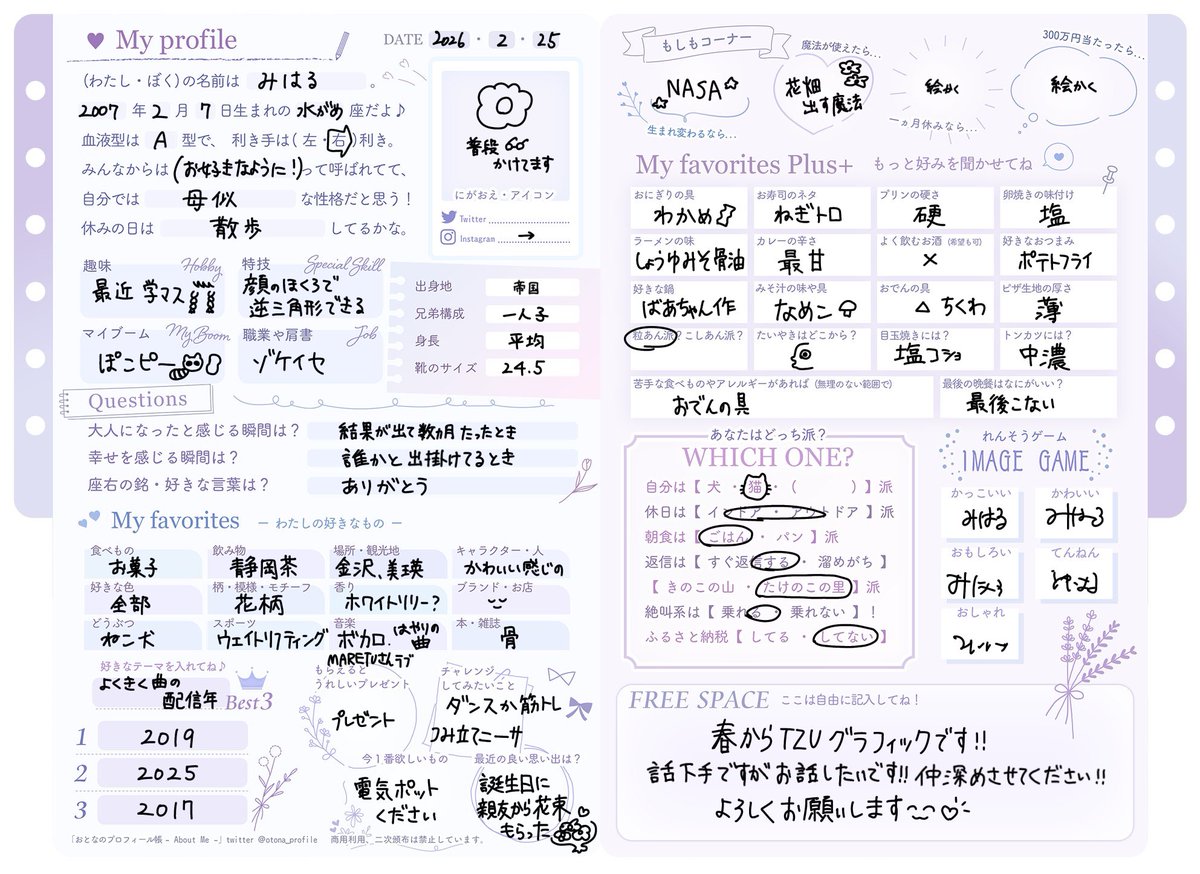 My profile
DATE 2026・2・25
(わたし・ぼく)の名前は みはる 。
2007 年 2 月 7 日生まれの 水がめ 座だよ♪
血液型は A 型で、利き手は(左・右)利き。
みんなからは (お好きなように!) って呼ばれてて、
自分では 母似 な性格だと思う!
休みの日は 散歩 してるかな。
普段
かけてます
にがおえ・アイコン
Twitter
Instagram →
趣味 Hobby
最近 学マス
特技 Special Skill
顔のほくろで
逆三角形できる
マイブーム My Boom
ぽこピー
職業や肩書 Job
ゾケイセ
出身地 帝国
兄弟構成 一人子
身長 平均
靴のサイズ 24.5
Questions
大人になったと感じる瞬間は? 結果が出て数カ月たったとき
幸せを感じる瞬間は? 誰かと出掛けてるとき
座右の銘・好きな言葉は? ありがとう
My favorites ー わたしの好きなもの ー
食べもの お菓子
飲み物 静岡茶
場所・観光地 金沢、美瑛
キャラクター・人 かわいい感じの
好きな色 全部
柄・模様・モチーフ 花柄
香り ホワイトリリー?
ブランド・お店
どうぶつ ネコ犬
スポーツ ウェイトリフティング
音楽 ボカロ、はやりの曲
MARETUさんラブ
本・雑誌 骨
好きなテーマを入れてね♪
よくきく曲の
配信年
Best3
1 2019
2 2025
3 2017
もらえると
うれしいプレゼント
プレゼント
チャレンジ
してみたいこと
ダンスか筋トレ
つみ立てニーサ
今1番欲しいもの
電気ポット
ください
最近の良い思い出は?
誕生日に
親友から花束
もらった
「おとなのプロフィール帳 - About Me -」twitter @otona_profile 商用利用、二次頒布は禁止しています。
もしもコーナー
NASA
生まれ変わるなら...
魔法が使えたら...
花畑
出す魔法
絵かく
一ヵ月休みなら...
300万円当たったら...
絵かく
My favorites Plus+ もっと好みを聞かせてね
おにぎりの具 わかめ
お寿司のネタ ねぎトロ
プリンの硬さ 硬
卵焼きの味付け 塩
ラーメンの味 しょうゆみそ骨油
カレーの辛さ 最甘
よく飲むお酒 (希望も可) ×
好きなおつまみ ポテトフライ
好きな鍋 ばあちゃん作
みそ汁の味や具 なめこ
おでんの具 △ ちくわ
ピザ生地の厚さ 薄
粒あん派?こしあん派?
たいやきはどこから?
目玉焼きには? 塩コショ
トンカツには? 中濃
苦手な食べものやアレルギーがあれば (無理のない範囲で)
おでんの具
最後の晩餐はなにがいい?
最後こない
あなたはどっち派?
WHICH ONE?
自分は【 犬 ・ 猫 ・ ( ) 】派
休日は【 インドア ・ アウトドア 】派
朝食は【 ごはん ・ パン 】派
返信は【 すぐ返信する ・ 溜めがち 】
【 きのこの山 ・ たけのこの里 】派
絶叫系は【 乗れる ・ 乗れない 】!
ふるさと納税【 してる ・ してない 】
れんそうゲーム
IMAGE GAME
かっこいい
みはる
かわいい
みはる
おもしろい
みはる
てんねん
おしゃれ
FREE SPACE ここは自由に記入してね!
春からTZUグラフィックです!!
話下手ですがお話したいです!!仲深めさせてください!!
よろしくお願いします